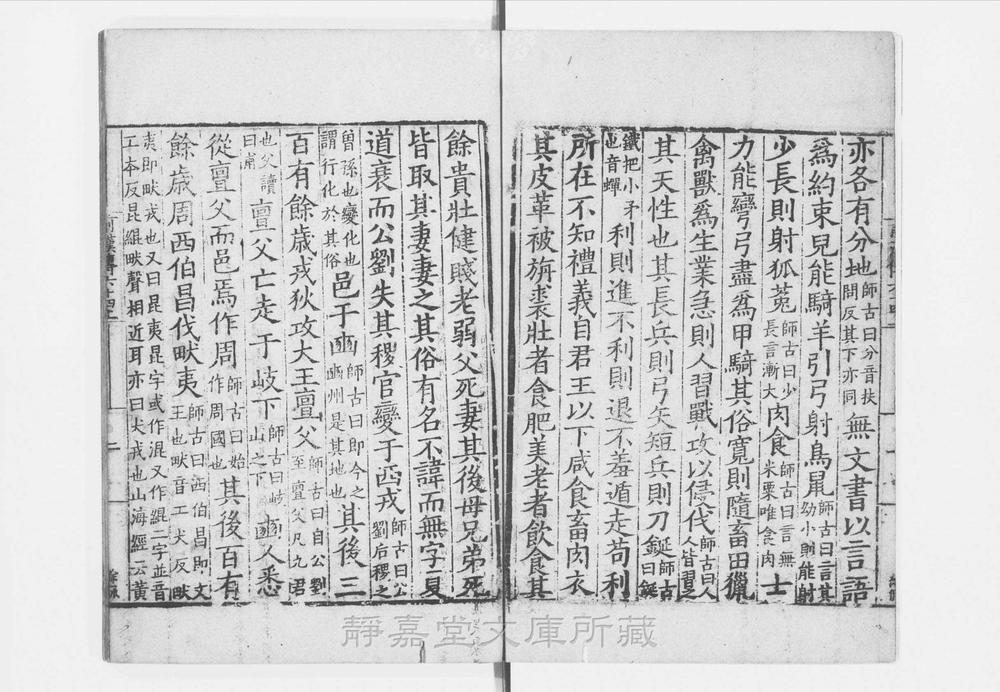 亦各有分地師古曰分音扶問反其下亦同無文書以言語
爲約束兒能騎羊引弓射鳥鼠師古曰言其幼小則能射
少長則射狐菟師古曰少長言漸大肉食師古曰言無米粟唯食肉士
力能彎弓盡爲甲騎其俗寬則隨畜田獵
禽獸爲生業急則人習戰攻以侵伐師古曰人人皆習之
其天性也其長兵則弓矢短兵則刀鋋師古曰鋋
鐵把小矛也音蟬利則進不利則退不羞遁走苟利
所在不知禮義自君王以下咸食畜肉衣
其皮革被旃裘壯者食肥美老者飲食其
餘貴壯健賤老弱父死妻其後母兄弟死
皆取其妻妻之其俗有名不諱而無字夏
道衰而公劉失其稷官變于西戎師古曰公劉后稷之
曾孫也變化也謂行化於其俗邑于豳師古曰即今之豳州是其地也其後三
百有餘歲戎狄攻大王亶父師古曰自公劉至亶父凡九君
也父讀曰甫亶父亡走于岐下師古曰岐山之下豳人悉
從亶父而邑焉作周師古曰始作周國也其後百有
餘歲周西伯昌伐畎夷師古曰西伯昌即文王也畎音工犬反畎
夷即畎戎也又曰昆夷昆字或作混又作緄二字並音工本反昆緄畎聲相近耳亦曰犬戎也山海經云黃
靜嘉堂文庫所藏